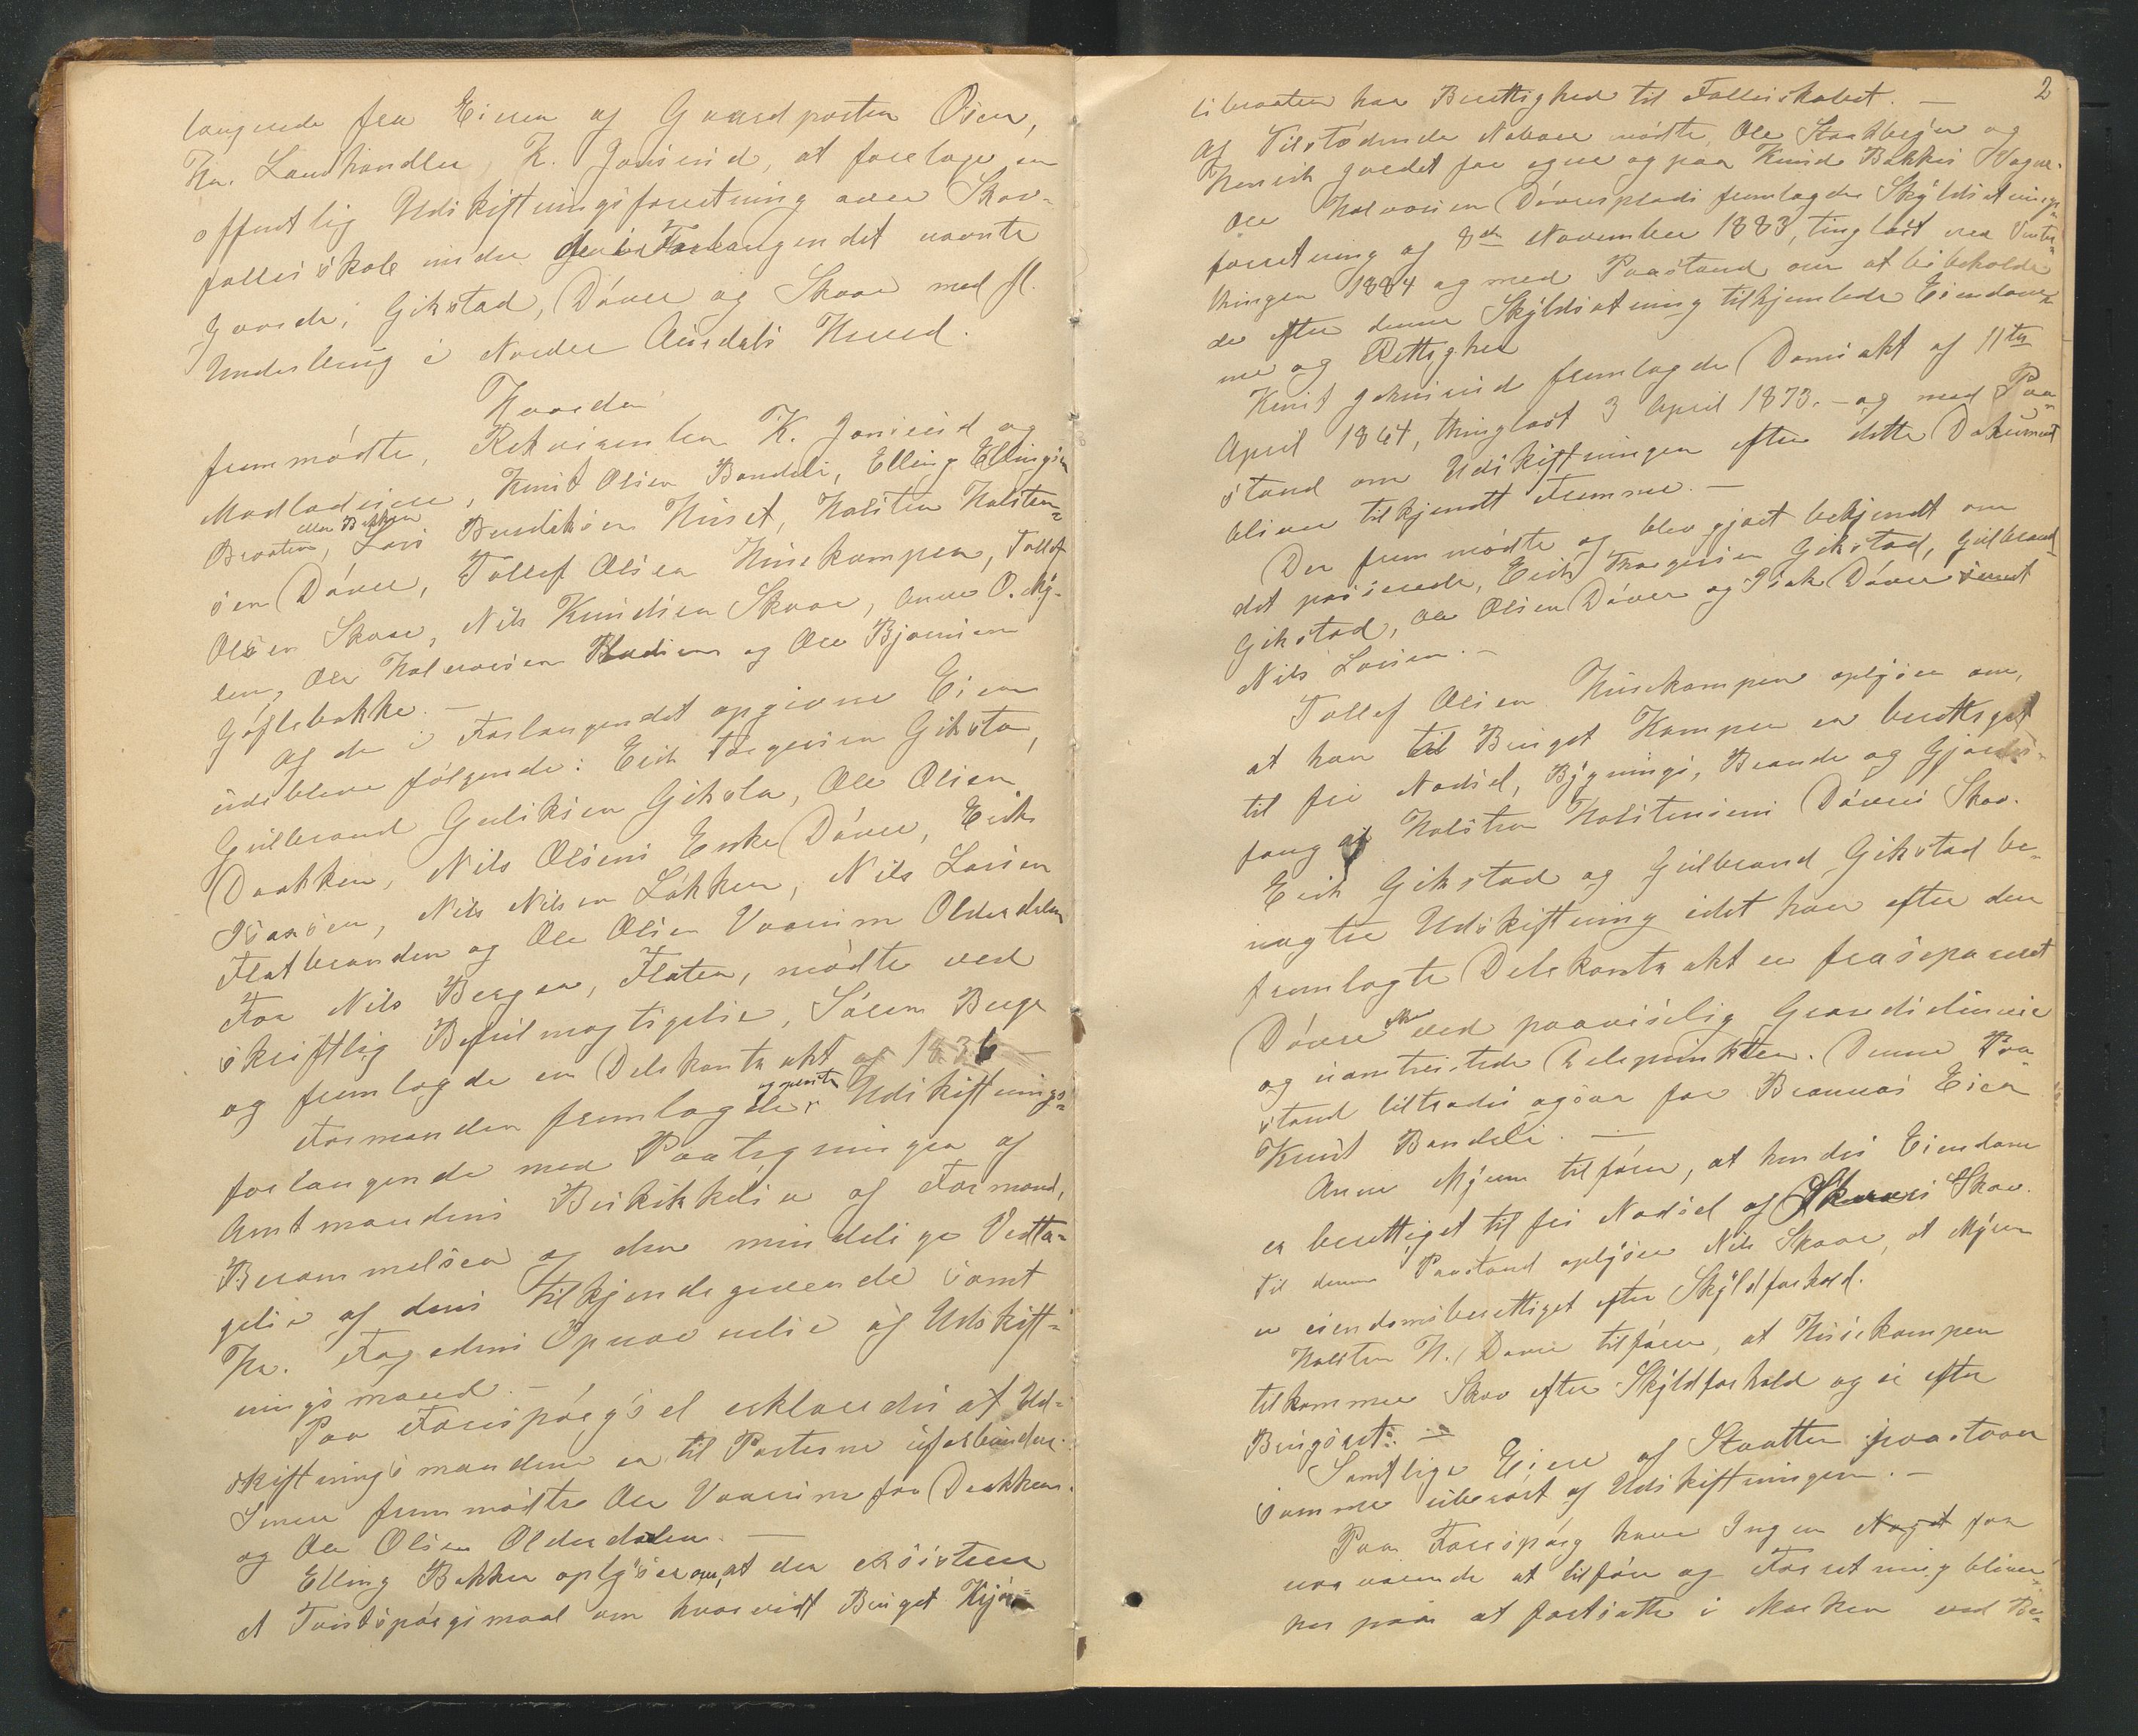 langende fra Eieren af Gaardparten Öien,
Hr. Landhandler K. Jonsrud, at foretage en
offentlig Udskiftningsforretning over Skov-
fællesskab under de i Forlangendet nævnte
Gaarde, Gikstad, Döver og Skaar med fl.
Underbrug i Nordre Aurdals Herred.
Hvorda
fremmödte, Rekvirenten K. Jonsrud og
Medlodseiere, Knut Olsen Bandeli, Elling Ellingsen
eller Bakken
Braaten, Lars Bendiksen Huset, Halsten Halsten-
sen Döver, Tollef Olsen Husekampen, Tollef
Olsen Skaar, Nils Knudsen Skaar, Anne O. My-
ren, Ole Halvorsen og Ole Bjørnsen
Göflebakke. —
Af de i Forlangendet opgivne Eiere
udebleve fölgende: Erik Torgersen Giksta,
Gulbrand Guliksen Giksta, Ole Olsen
Dokken, Nils Olsens Enke Döver, Erik
Isaksen, Nils Nilsen Løkken, Nils Larsen
Flatbranden og Ole Olsen Olderdalen
For Nils Bergen, Flaten, mödte ved
skriftlig Befuldmægtigelse, Sören Berge
og fremlagde en Delekontrakt af 1836 —
og oplæste
Formanden fremlagde Udskiftnings-
forlangende med Paategninger af
Amtmandens Beskikkelse af Formand,
Berammelsen og den mindelige Vedta-
gelse af dens tilkjendegivende samt
Hr. Fogdens Opnævnelse af Udskift-
ningsmænd. —
Paa Forespörgsel erklæredes at Ud-
skiftningsmændene er til Parterne uforbundne.
Senere fremmödte Ole Vaarum fra Dokken
og Ole Olsen Olderdalen. —
Elling Bakken oplyser om, at der existerer
et Tvistspörgsmaal om hvorvidt Bruget

2
libraaten har Berettighed til Fællesskabet. —
Af Tilstödende Naboer mödte, Ole Strandbryn og
Henrik Jordet for egne og paa Knud Bakkes Vegne.
Ole Halvorsen Döversplads fremlagde Skyldsætnings-
forretning af 8de November 1883, tinglæst ved Vinter-
thinget 1884 og med Paastand om at bibeholde
de efter denne Skyldsætning tilhjemlede Eiendom-
me og Rettighed
Knut Johnsrud fremlagde Domsakt af 11te
April 1864, thinglæst 3 April 1873. — og med Paa-
stand om Udskiftningen efter dette Dokument
bliver tilkjendt Fremme. —
Der fremmödte og blev gjort bekjendt om
det passerede, Erik Torgersen Gikstad, Gulbrand
Gikstad, Ole Olsen Döver og Isak Döver samt
Nils Larsen. —
Tollef Olsen Husekampen oplyser om,
at han til Bruget Kampen er berettiget
til fri Nødsel, Bygnings, Brænde og Gjærde-
fang af Halsten Halstensens Dövers Skov.
Erik Gikstad og Gulbrand Gikstad be-
nægter Udskiftning idet han efter den
fremlagte Delekontrakt er fraseparert
Döver ved paaviselig Grændselinie
og uomtvistede Delepunkter. Denne Paa-
stand tiltrædes ogsaa for Brænnas Eier
Knut Bandeli. —
Anne Myren tilförer, at hendes Eiendom
er berettiget til fri Nødsel af Skaars Skov.
Til denne Paastand oplyser Nils Skaar, at Myren
er eiendomsberettiget efter Skyldforhold.
Halsten H. Döver tilförer, at Husekampen
tilkommer Skov efter Skyldforhold og ei efter
Brugsret. —
Samtlige Eiere af Staatten paastaar
samme uberört af Udskiftningen. —
Paa Forespörg have Ingen Noget for
nærværende at tilföre og Forretning bliver
her paa at fortsætte i Marken ved Be-